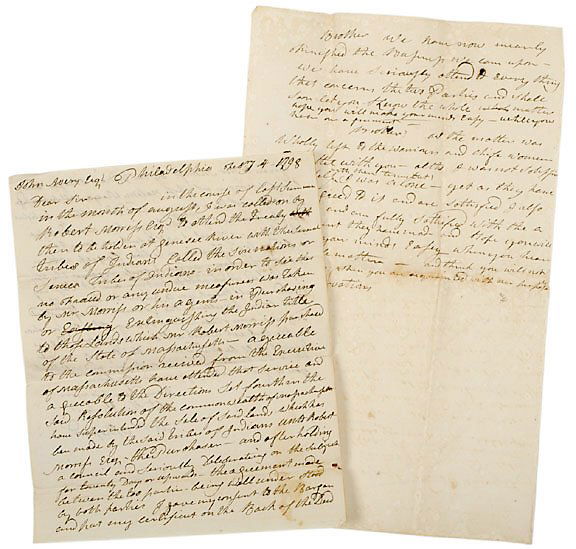 John Avery Esqr Philadelphia Feby 4 1798
Dear Sir
in the course of last Summer
in the month of august I was called on by
Robert Morris Esqr to attend the Treaty
then to be holden at Genesee River with the
tribes of Indians Called the Six nations or
Seneca Tribe of Indians in order to see that
no fraud or any undue measures was taken
by Mr Morris or his agents in Purchasing
or Exting Extinguishing the Indian title
to those Lands which Mr Robert Morriss Purchased
of the State of Massachusetts agreeable
to the commission received from the Executive
of Massachusetts have attended that Service and
agreeable to the Directions Set fourth in the
Said Resolution of the commonwealth of
have Superintendd the Sale of Said land which has
ben made by the Said tribes of Indians unto Robert
Morris Esqr the Purchaser and after holding
a council and Seriously Deliberating on the Subject
for twenty Days or upwards the agreement made
between the two parties being well under Stood
by both parties I gave my consent to the Bargan
and put my certificate on the Back of the Deed
Brother We have now nearly
finished the Business we came upon
We have Seriously attend to every thing
that concerns the two Parties and shall
Soon let you Know the whole matter
hope you will make your minds Easy while you
here on a
Brother as the matter was
Wholly left to the Warriors and chife women
with you
it was done yet as they have
agreed to it and are Sotisfied I also
and am fully Sotisfied with the a
they have made and I hope you will
your minds Easey when you hear
matter and think you will not
when you are acquainted with our